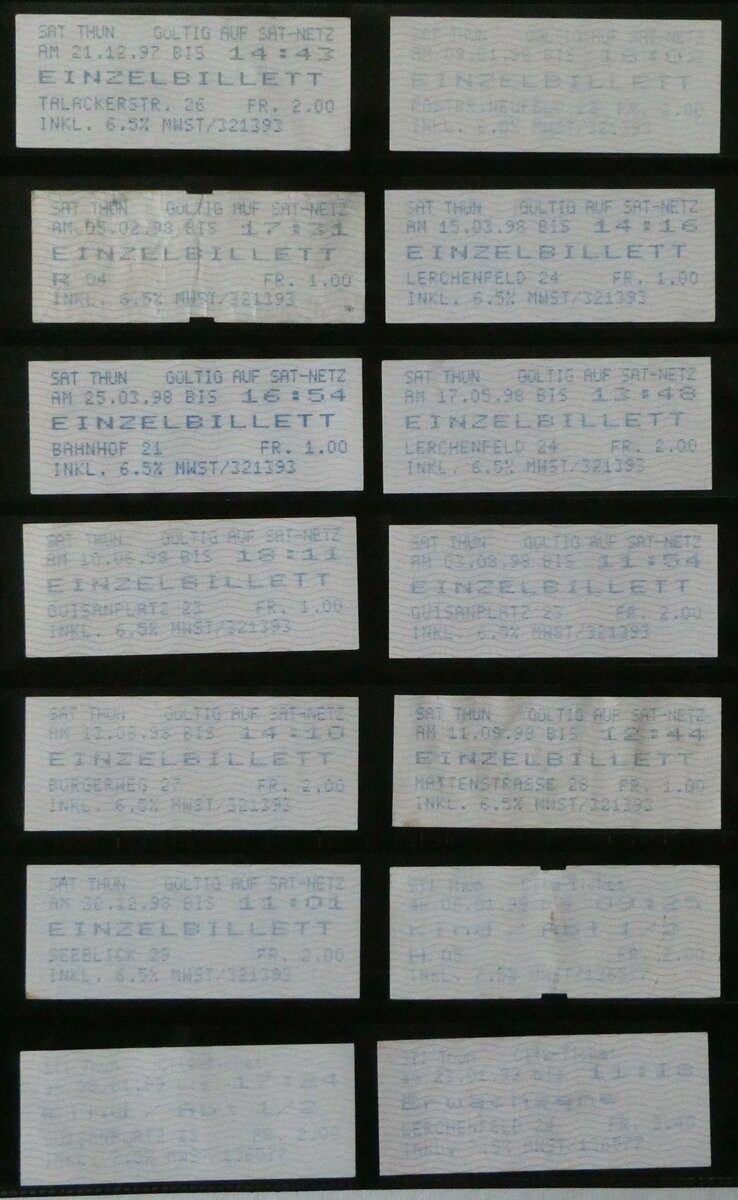 SAT THUN GÜLTIG AUF SAT-NETZ
AM 21.12.97 BIS 14:43
EINZELBILLETT
TALACKERSTR. 26 FR. 2.00
INKL. 6.5% MWST/321393
SAT THUN GÜLTIG AUF SAT-NETZ
AM 09.01.98 BIS
EINZELBILLETT
INKL. 6.5% MWST/321393
SAT THUN GÜLTIG AUF SAT-NETZ
AM 05.02.98 BIS 17:31
EINZELBILLETT
R 04 FR. 1.00
INKL. 6.5% MWST/321393
SAT THUN GÜLTIG AUF SAT-NETZ
AM 15.03.98 BIS 14:16
EINZELBILLETT
LERCHENFELD 24 FR. 1.00
INKL. 6.5% MWST/321393
SAT THUN GÜLTIG AUF SAT-NETZ
AM 25.03.98 BIS 16:54
EINZELBILLETT
BAHNHOF 21 FR. 1.00
INKL. 6.5% MWST/321393
SAT THUN GÜLTIG AUF SAT-NETZ
AM 17.05.98 BIS 13:48
EINZELBILLETT
LERCHENFELD 24 FR. 2.00
INKL. 6.5% MWST/321393
SAT THUN GÜLTIG AUF SAT-NETZ
AM BIS
EINZELBILLETT
GUISANPLATZ 23 FR. 1.00
INKL. 6.5% MWST/321393
SAT THUN GÜLTIG AUF SAT-NETZ
AM 03.08.98 BIS 11:54
EINZELBILLETT
GUISANPLATZ 23 FR. 2.00
INKL. 6.5% MWST/321393
SAT THUN GÜLTIG AUF SAT-NETZ
AM BIS 14:10
EINZELBILLETT
BURGERWEG 27 FR. 2.00
INKL. 6.5% MWST/321393
SAT THUN GÜLTIG AUF SAT-NETZ
AM 11.09.98 BIS 12:44
EINZELBILLETT
MATTENSTRASSE 28 FR. 1.00
INKL. 6.5% MWST/321393
SAT THUN GÜLTIG AUF SAT-NETZ
AM 30.12.98 BIS 11:01
EINZELBILLETT
SEEBLICK 28 FR. 2.00
INKL. 6.5% MWST/321393
STI Thun City-Ticket
am 06.01.99 bis 09:25
Kind / Abt 1/2
H 05 FR. 2.00
INKL. 7.5% MWST/136577
STI Thun City-Ticket
bis 17:24
Kind / Abt 1/2
GUISANPLATZ 23 FR. 2.00
INKL. 7.5% MWST 136577
STI Thun City-Ticket
am bis 11:18
Erwachsene
LERCHENFELD 24 FR.
INKL. 7.5% MWST 136577